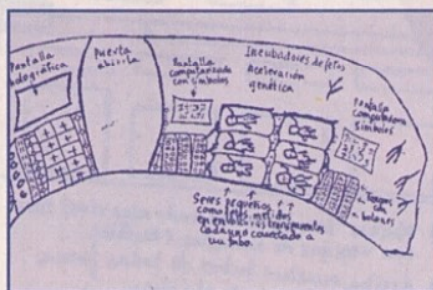 Pantalla
holográfica
Puerta
abierta
Pantalla
computarizada
con símbolos
Incubadoras de fetos
Aceleración
genética
Pantalla
computadora
símbolos
Seres pequeños
como fetos metidos
en envases transparentes
cada uno conectado a
un tubo.
con